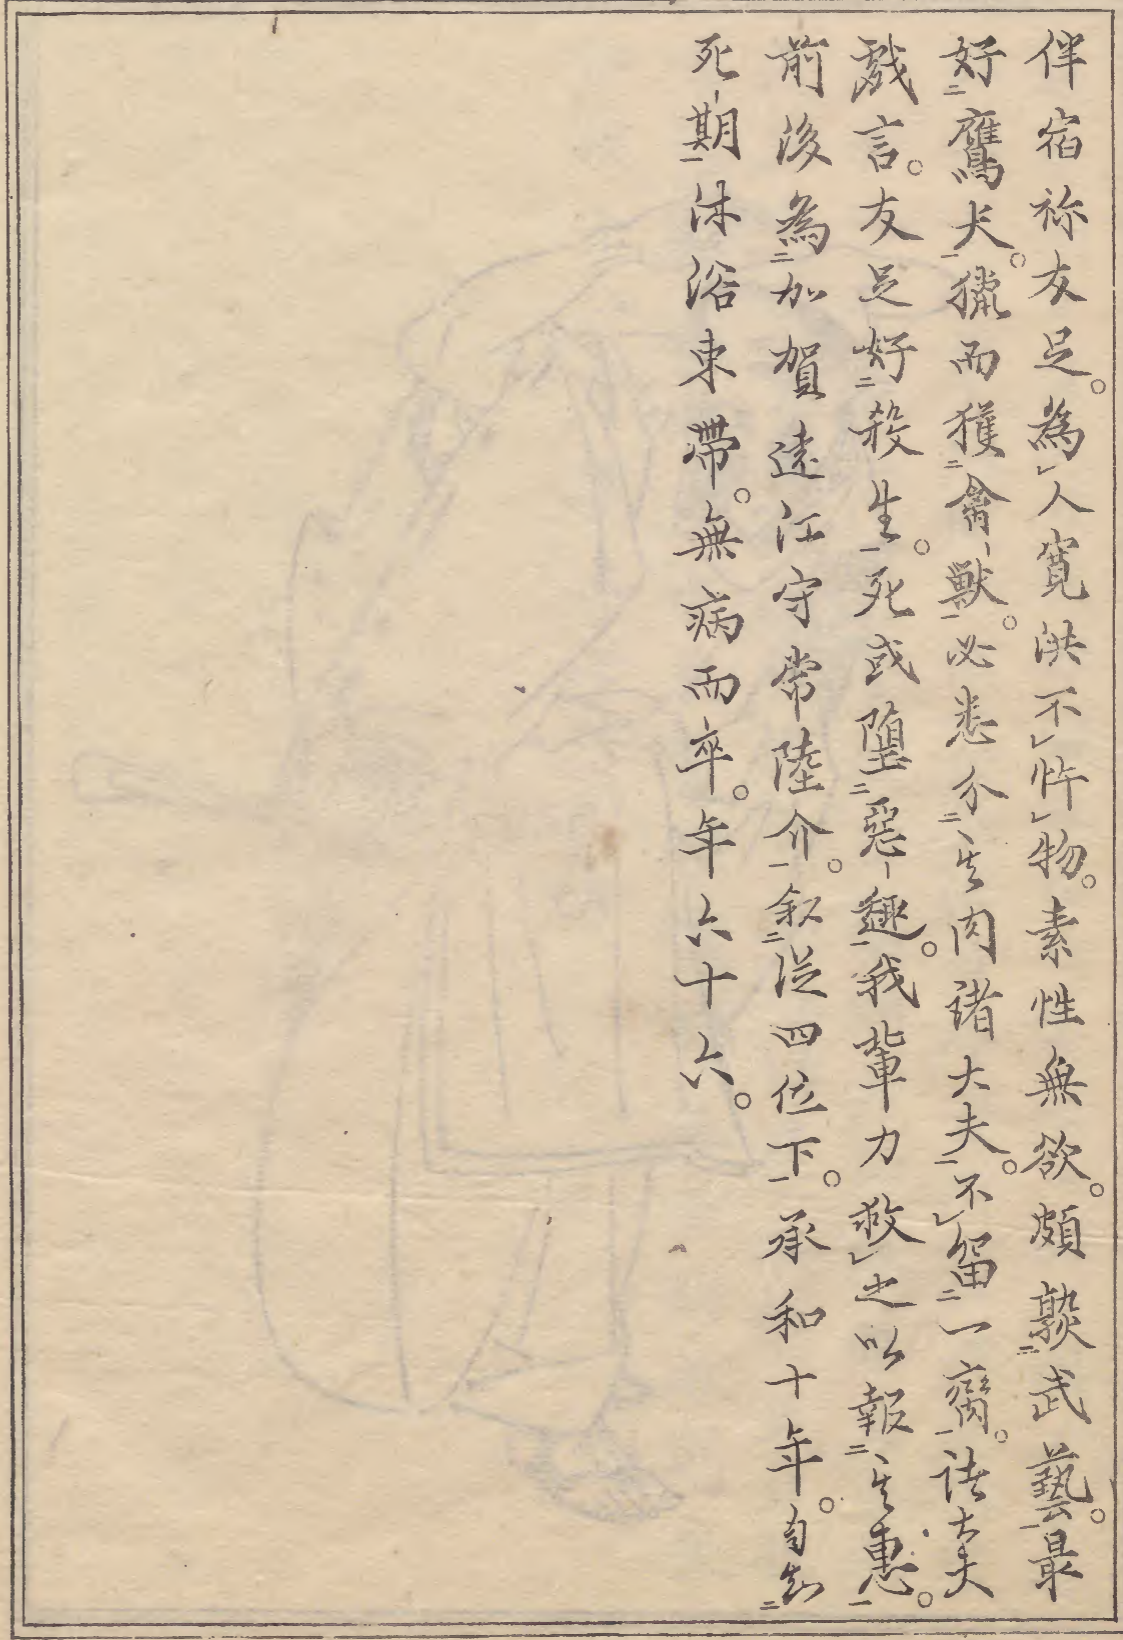 伴宿祢友足。為人寛洪不忤物。素性無欲。頗㪟武藝。最
好鷹犬。獵而獲禽獸。必悉分其肉諸大夫。不留一臠。諸大夫
戲言。友足好殺生。死或墮惡趣。我輩力救之以報其惠。
前後為加賀遠江守常陸介。叙從四位下。承和十年。自知
死期沐浴束帶。無病而卒。年六十六。